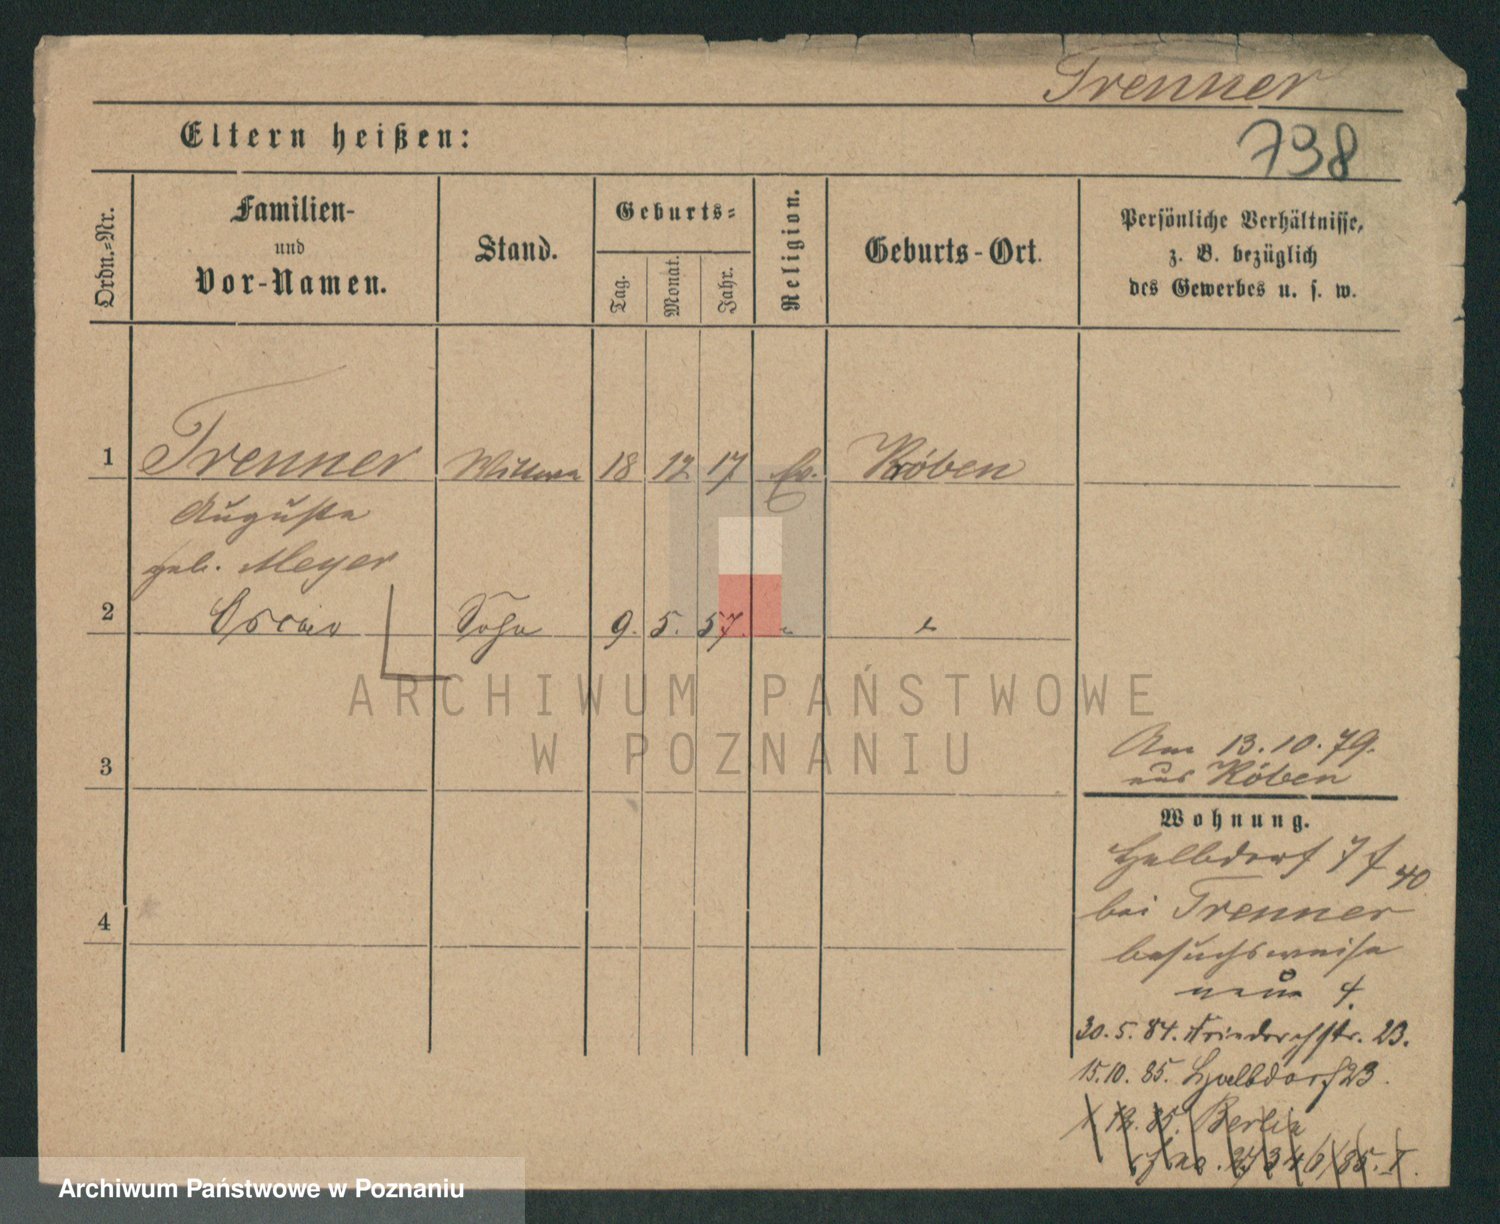 Trenner
Eltern heißen:
738
Ordn.=Nr.
Familien-
und
Vor-Namen.
Stand.
Geburts=
Tag.
Monat.
Jahr.
Religion.
Geburts-Ort.
Persönliche Verhältnisse,
z. B. bezüglich
des Gewerbes u. s. w.
1 Trenner Wittwe 18 12 17 Ev. Kröben
Auguste
geb. Meyer
2 Oscar Sohn 9. 5. 57. " "
ARCHIWUM PAŃSTWOWE
W POZNANIU
3
4
Am 13.10.79.
aus Köben
Wohnung.
Halbdorf 7 40
bei Trenner
besuchsweise
neun 4.
30.5.84. Friedrichstr. 23.
15.10.85. Halbdorf 23.
85. Berlin
Archiwum Państwowe w Poznaniu